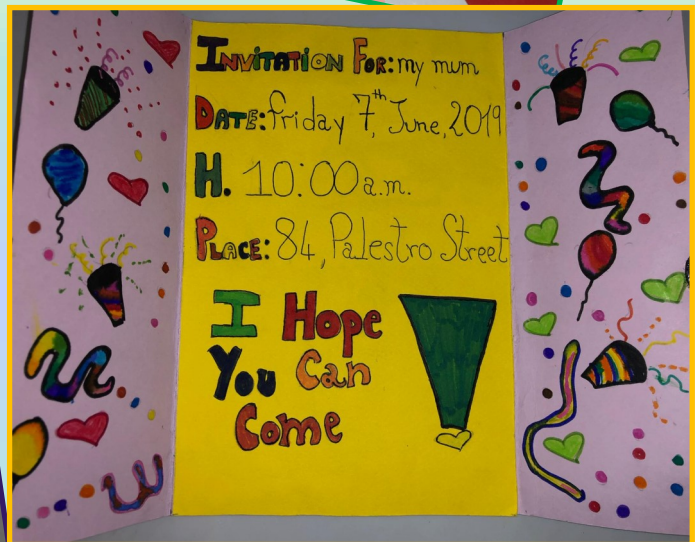 INVITATION FOR: my mum
DATE: friday 7th, June, 2019
H. 10:00 a.m.
PLACE: 84, Palestro Street
I HOPE
YOU Can
Come